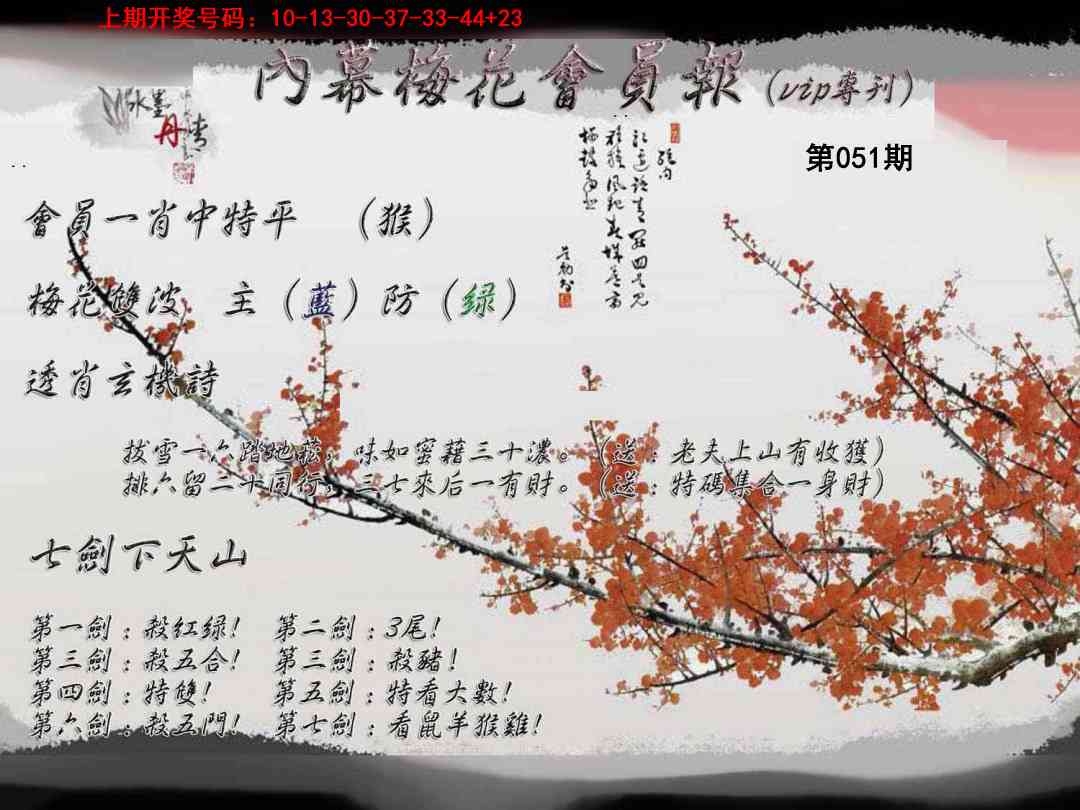 上期开奖号码：10-13-30-37-33-44+23
內幕梅花會員報(vip專刊)
水墨
丹青
第051期
會員一肖中特平 （猴）
梅花雙波 主（藍）防（绿）
透肖玄機詩
拔雪一六踏地菘，味如蜜藉三十濃。（送：老夫上山有收獲）
排六留二十同行，三七來后一有財。（送：特碼集合一身財）
七劍下天山
第一劍：殺红绿！ 第二劍：3尾！
第三劍：殺五合！ 第三劍：殺豬！
第四劍：特雙！ 第五劍：特看大數！
第六劍：殺五門！ 第七劍：看鼠羊猴雞！